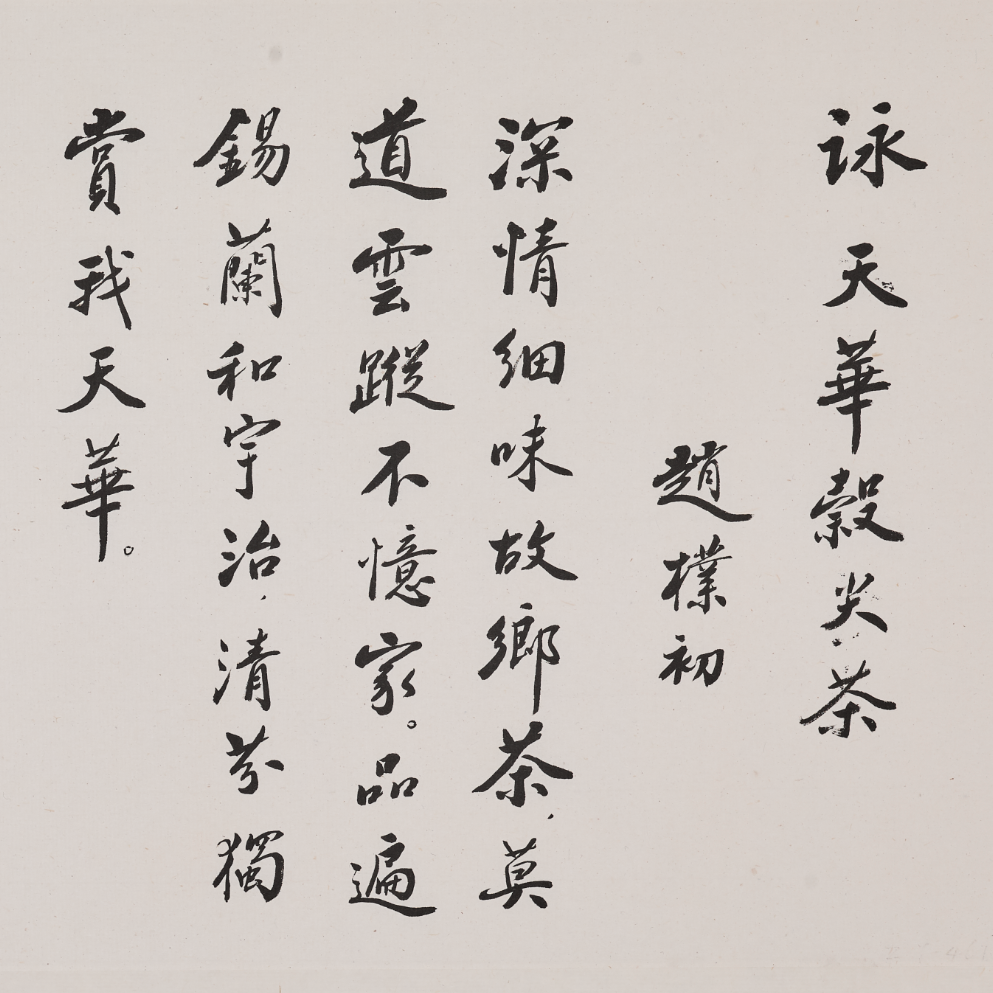 詠天華穀尖茶
趙樸初
深情細味故鄉茶,莫
道雲蹤不憶家。品遍
錫蘭和宇治,清芬獨
賞我天華。